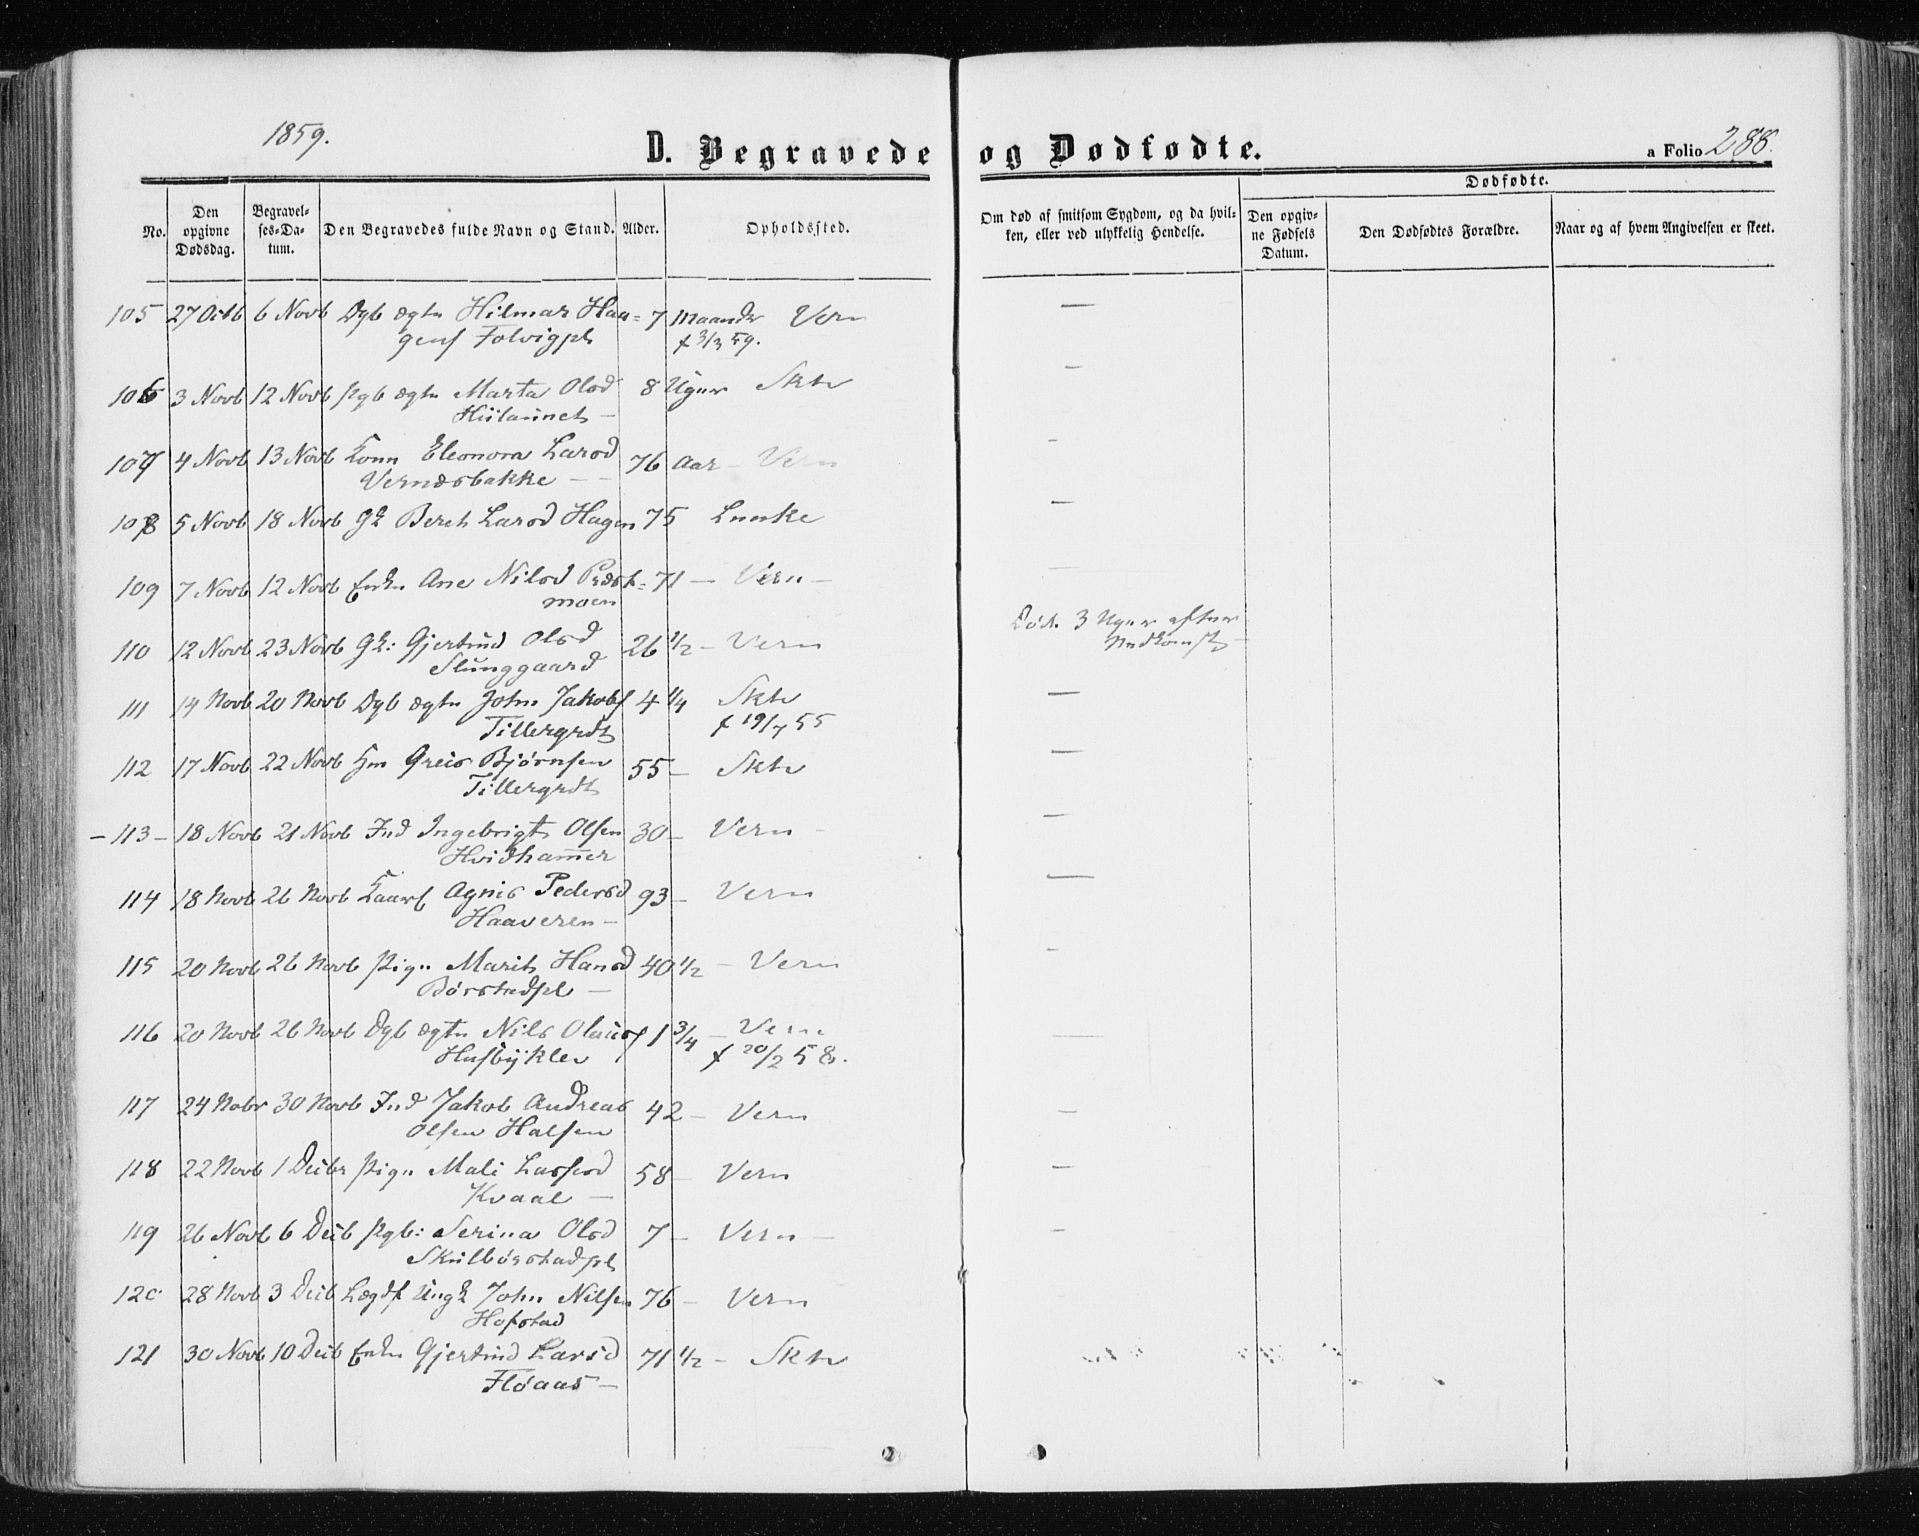 1859.
D. Begravede og Dødfødte.
a Folio 288.
No.
Den opgivne Dødsdag.
Begravelses-Datum.
Den Begravedes fulde Navn og Stand.
Alder.
Opholdssted.
Om død af smitsom Sygdom, og da hvilken, eller ved ulykkelig Hendelse.
Dødfødte.
Den opgivne Fødsels Datum.
Den Dødfødtes Forældre.
Naar og af hvem Angivelsen er skeet.
105 27 Octb 6 Novb Dgb ægte Hilmar Haa= 7 Maander Vern —
gens Folvigpl f 3/3 59.
106 3 Novb 12 Novb Pgb ægte Marta Olsd 8 Uger Skt —
Hiilaunet —
107 4 Novb 13 Novb Konn Eleonora Larsd 76 Aar — Vern —
Vernæsbakke — —
108 5 Novb 18 Novb Gk Beret Larsd Hagen 75 Luuske —
109 7 Novb 12 Novb Enke Ane Nilsd Præst= 71 — Vern —
moen
110 12 Novb 23 Novb Gk: Gjertrud Olsd 26 1/2 — Vern Død 3 Uger efter
Slunggaard Nedkomst —
111 14 Novb 20 Novb Dgb ægte John Jakobs 4 1/4 Skt —
Tillergrdt f 19/7 55
112 17 Novb 22 Novb Hm Greis Bjørnsen 55 — Skt —
Tillergrdt
— 113 — 18 Novb 21 Novb Ind Ingebrigt Olsen 30 — Vern — —
Hvidham̅er
114 18 Novb 26 Novb Kaarf Agnis Pedersd 93 — Vern —
Haaveren —
115 20 Novb 26 Novb Pige Marit Hansd 40 1/2 — Vern —
Børstadpl —
116 20 Novb 26 Novb Dgb ægte Nils Olaus 1 3/4 — Vern —
Husbykle f 20/2 58.
117 24 Nobr 30 Novb Ind Jakob Andreas 42 — Vern —
Olsen Halsen
118 22 Novb 1 Decbr Pige Mali Larsd 58 — Vern —
Kvaal —
119 26 Novb 6 Decb Pgb: Serina Olsd 7 — Vern — —
Skulbørstadpl
120 28 Novb 3 Decb Lægdf Ungk John Nilsen 76 — Vern
Hofstad
121 30 Novb 10 Decb Enke Gjertrud Larsd 71 1/2 — Skt
Fløaas —